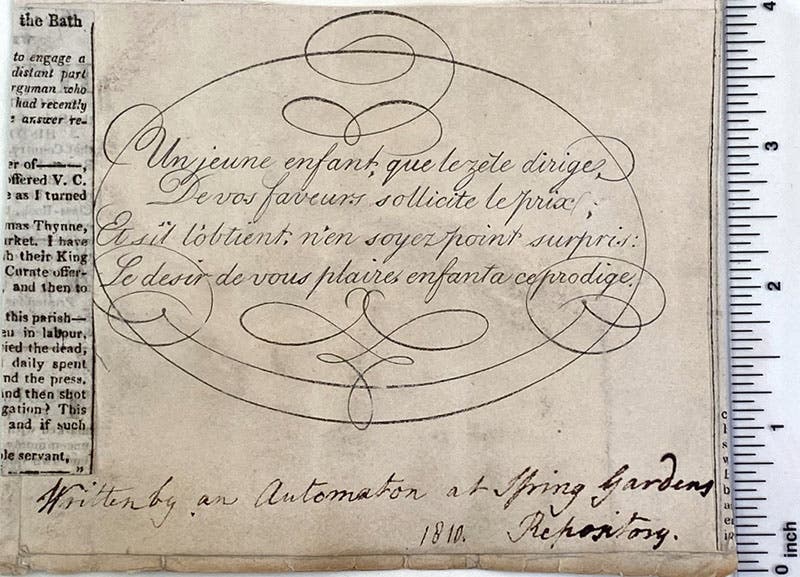 the Bath
to engage a
distant part
rgyman who
had recently
answer re-
er of———,
offered V. C.
as I turned
mas Thynne,
rket. I have
h their King
Curate offer-
, and then to
this parish—
eu in labour,
ied the dead,
daily spent
nd the press,
nd then shot
gation? This
and if such
le servant,
Un jeune enfant, que le zéle dirige,
De vos faveurs sollicite le prix;
Et s'il l'obtient, n'en soyez point surpris:
Le desir de vous plaire, enfanta ce prodige.
Written by an Automaton at Spring Gardens
1810. Repository.
4
3
2
1
0 inch